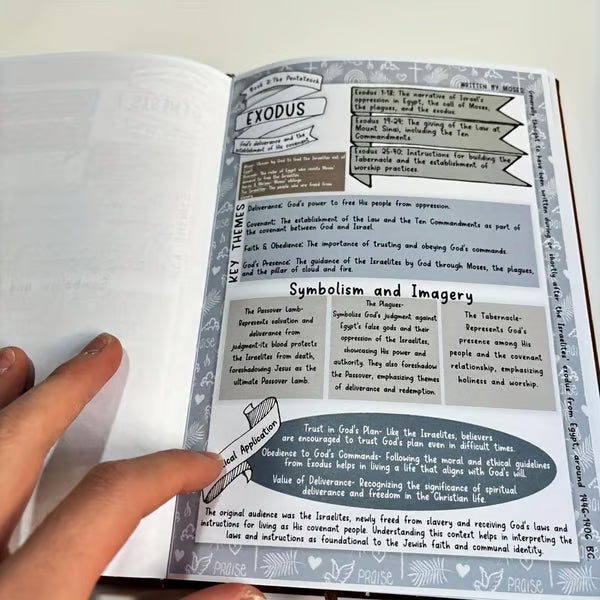 Book 2: The Pentateuch
EXODUS
God's deliverance and the
establishment of His covenant.
WRITTEN BY MOSES
Exodus 1-18: The narrative of Israel's
oppression in Egypt, the call of Moses,
the plagues, and the exodus.
Exodus 19-24: The giving of the Law at
Mount Sinai, including the Ten
Commandments.
Exodus 25-40: Instructions for building the
Tabernacle and the establishment of
worship practices.
chosen by God to lead the Israelites out of
Egypt.
The ruler of Egypt who resists Moses'
demand to free the Israelites.
Aaron & Miriam: Moses' siblings
The Israelites: The people who are freed from
KEY THEMES
Deliverance: God's power to free His people from oppression.
Covenant: The establishment of the Law and the Ten Commandments as part of
the covenant between God and Israel.
Faith & Obedience: The importance of trusting and obeying God's commands.
God's Presence: The guidance of the Israelites by God through Moses, the plagues,
and the pillar of cloud and fire.
Symbolism and Imagery
The Passover Lamb-
Represents salvation and
deliverance from
judgment-its blood protects
the Israelites from death,
foreshadowing Jesus as the
ultimate Passover Lamb.
The Plagues-
Symbolize God's judgment against
Egypt's false gods and their
oppression of the Israelites,
showcasing His power and
authority. They also foreshadow
the Passover, emphasizing themes
of deliverance and redemption.
The Tabernacle-
Represents God's
presence among His
people and the covenant
relationship, emphasizing
holiness and worship.
ical Application
Trust in God's Plan- Like the Israelites, believers
are encouraged to trust God's plan even in difficult times.
Obedience to God's Commands- Following the moral and ethical guidelines
from Exodus helps in living a life that aligns with God's will.
Value of Deliverance- Recognizing the significance of spiritual
deliverance and freedom in the Christian life.
The original audience was the Israelites, newly freed from slavery and receiving God's laws and
instructions for living as His covenant people. Understanding this context helps in interpreting the
laws and instructions as foundational to the Jewish faith and communal identity.
Commonly thought to have been written during or shortly after the Israelites' exodus from Egypt around 1446-1406 BC
PRAISE
PRAISE
PRAISE